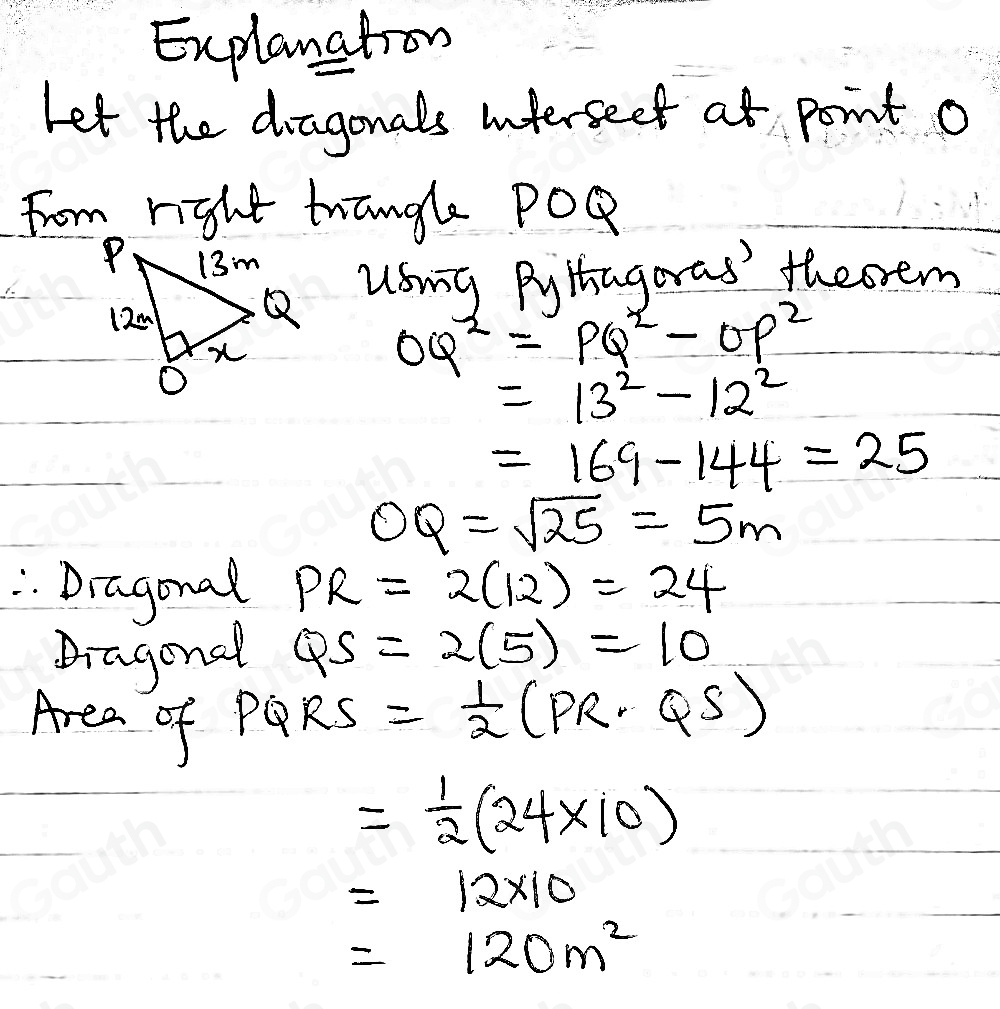 Explanation
Let the diagonals intersect at point O
From right triangle POQ
P 13m Using Pythagoras' theorem
12m Q OQ² = PQ² - OP²
x
O = 13² - 12²
= 169 - 144 = 25
OQ = √25 = 5m
∴ Diagonal PR = 2(12) = 24
Diagonal QS = 2(5) = 10
Area of PQRS = 1/2 (PR · QS)
= 1/2 (24×10)
= 12×10
= 120m²